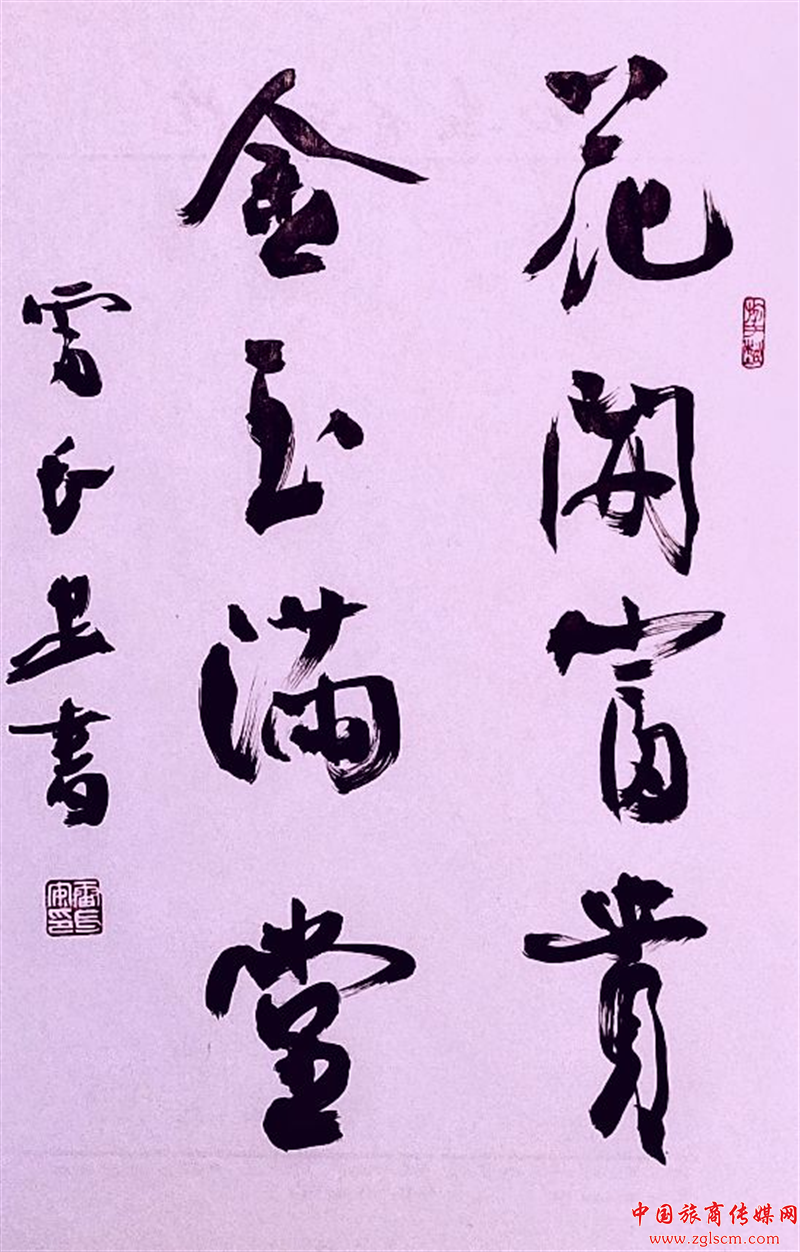 花開富貴
金玉滿堂
雷长安書
中国旅商传媒网
www.zglscm.com